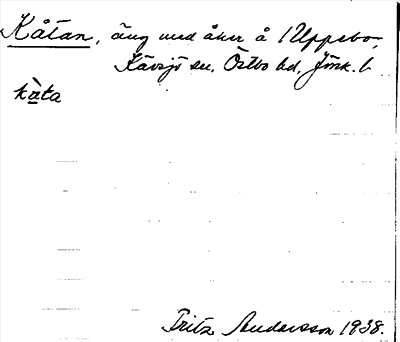 Kåtan, äng med åker å 1 Uppebo,
Kävsjö sn. Östbo hd, Jönk. l.
kàta
Fritz Andersson 1938.